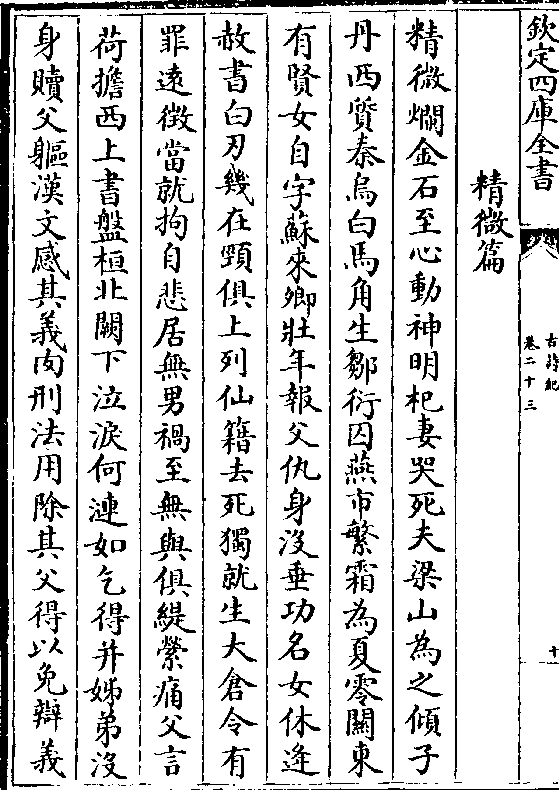 欽定四庫全書
古詩紀
卷二十三
十
精微篇
精微爛金石至心動神明杞妻哭死夫梁山為之傾子
丹西質秦烏白馬角生鄒衍囚燕市繁霜為夏零關東
有賢女自字蘇來卿壯年報父仇身沒垂功名女休逢
赦書白刃幾在頸俱上列仙籍去死獨就生大倉令有
罪逺徴當就拘自悲居無男禍至無與俱緹縈痛父言
荷擔西上書盤桓北闕下泣淚何漣如乞得并姊弟沒
身贖父軀漢文感其義肉刑法用除其父得以免辯義